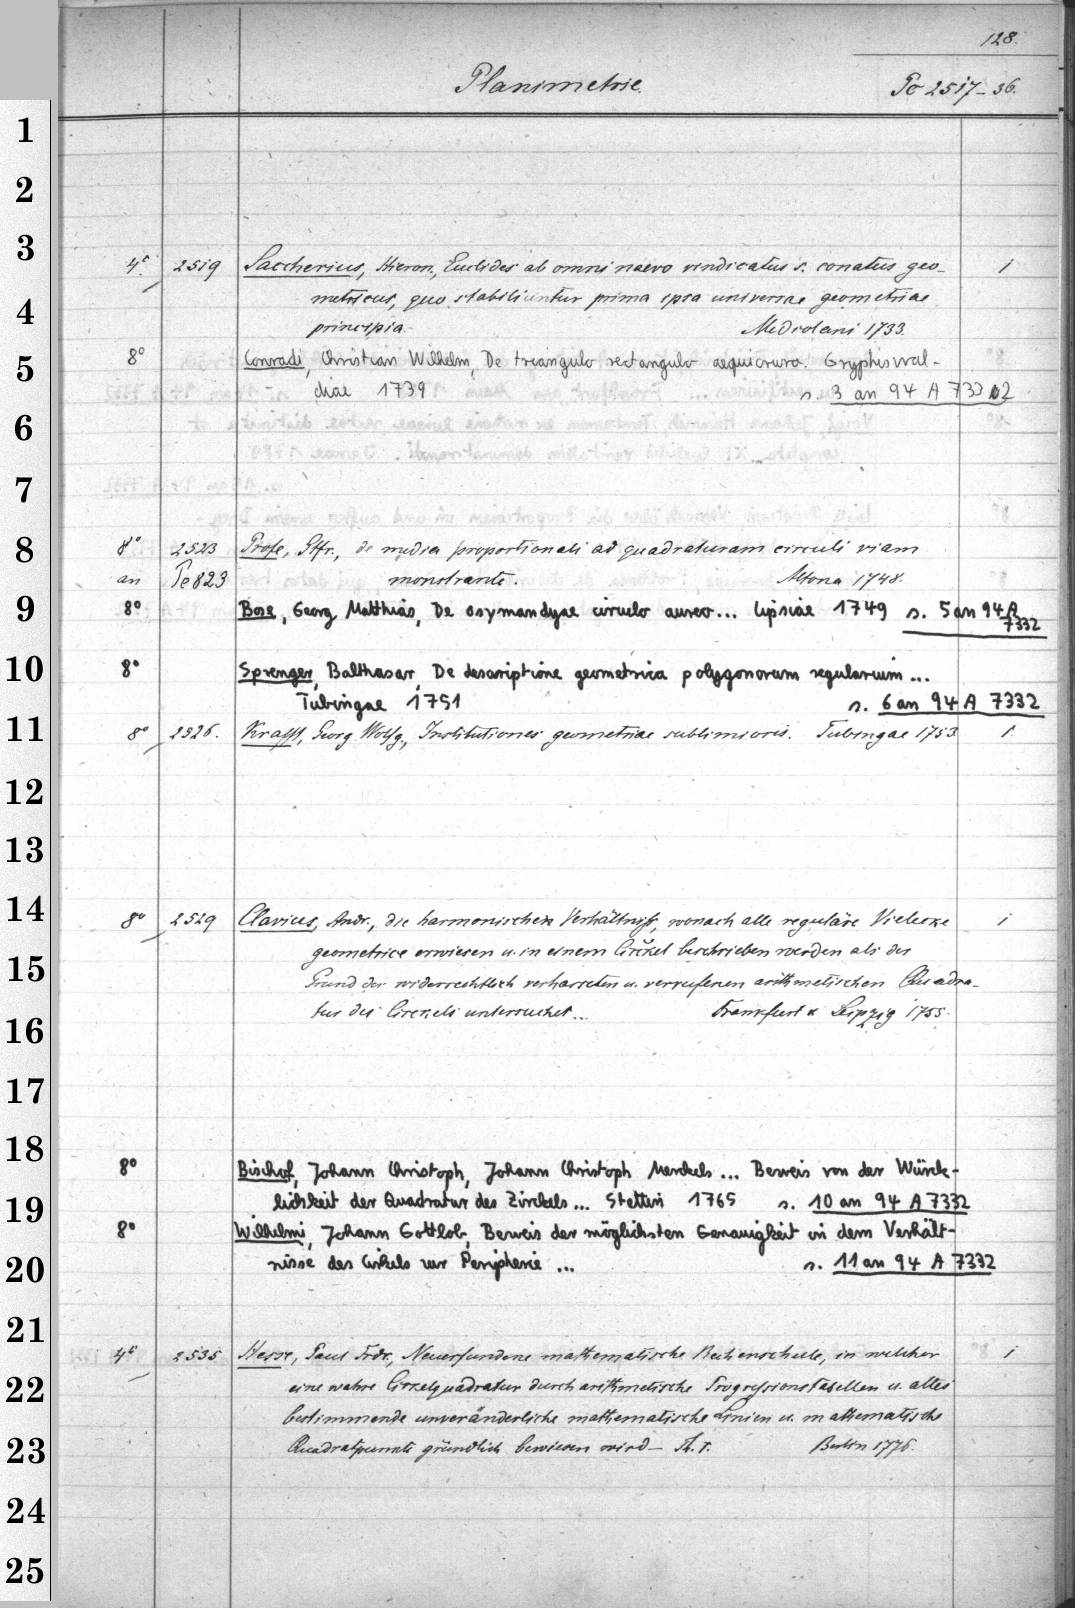 128.
Planimetrie. Pe 2517-36.
1
2
3
4° 2519 Saccherius, Hieron., Euclides ab omni naevo vindicatus s. conatus geo- 1
4
metricus, quo stabiliuntur prima ipsa universae geometriae
principia. Mediolani 1733.
5
8° Conradi, Christian Wilhelm, De triangulo rectangulo aequicruro. Gryphiswal-
diae 1739 s. 3 an 94 A 7332
6
7
8
8° 2523 Profe, Gfr., de media proportionali ad quadraturam circuli viam
an Pe 823 monstrante. Altona 1748.
9
8° Bose, Georg Matthias, De osymandyae circulo aureo... Lipsiae 1749 s. 5 an 94 A
7332
10
8° Sprenger, Balthasar, De descriptione geometrica polygonorum regularium ...
Tubingae 1751 s. 6 an 94 A 7332
11
8° 2526. Krafft, Georg Wolfg., Institutiones geometriae sublimioris. Tubingae 1753 1
12
13
14
8° 2529 Clavius, Andr., die harmonischen Verhältnisse, wonach alle reguläre Vielecke 1
geometrice erwiesen u. in einem Circkel beschrieben werden als der
15
Grund der widerrechtlich verhassten u. verrufenen arithmetischen Quadra-
tur des Circkels untersuchet... Frankfurt & Leipzig 1755.
16
17
18
8° Bischof, Johann Christoph, Johann Christoph Merckels ... Beweis von der Würck-
19
lichkeit der Quadratur des Zirckels... Stettin 1765 s. 10 an 94 A 7332
8° Wilhelmi, Johann Gottlob, Beweis der möglichsten Genauigkeit in dem Verhält-
20
nisse des Cirkels zur Peripherie ... s. 11 an 94 A 7332
21
4° 2535 Hesse, Paul Frdr., Neuerfundene mathematische Rechenschule, in welcher 1
22
eine wahre Cirkelquadratur durch arithmetische Progressionstabellen u. alles
bestimmende unveränderliche mathematische Linien u. mathematische
23
Quadratpunkte gründlich bewiesen wird - Th. I. Berlin 1776.
24
25